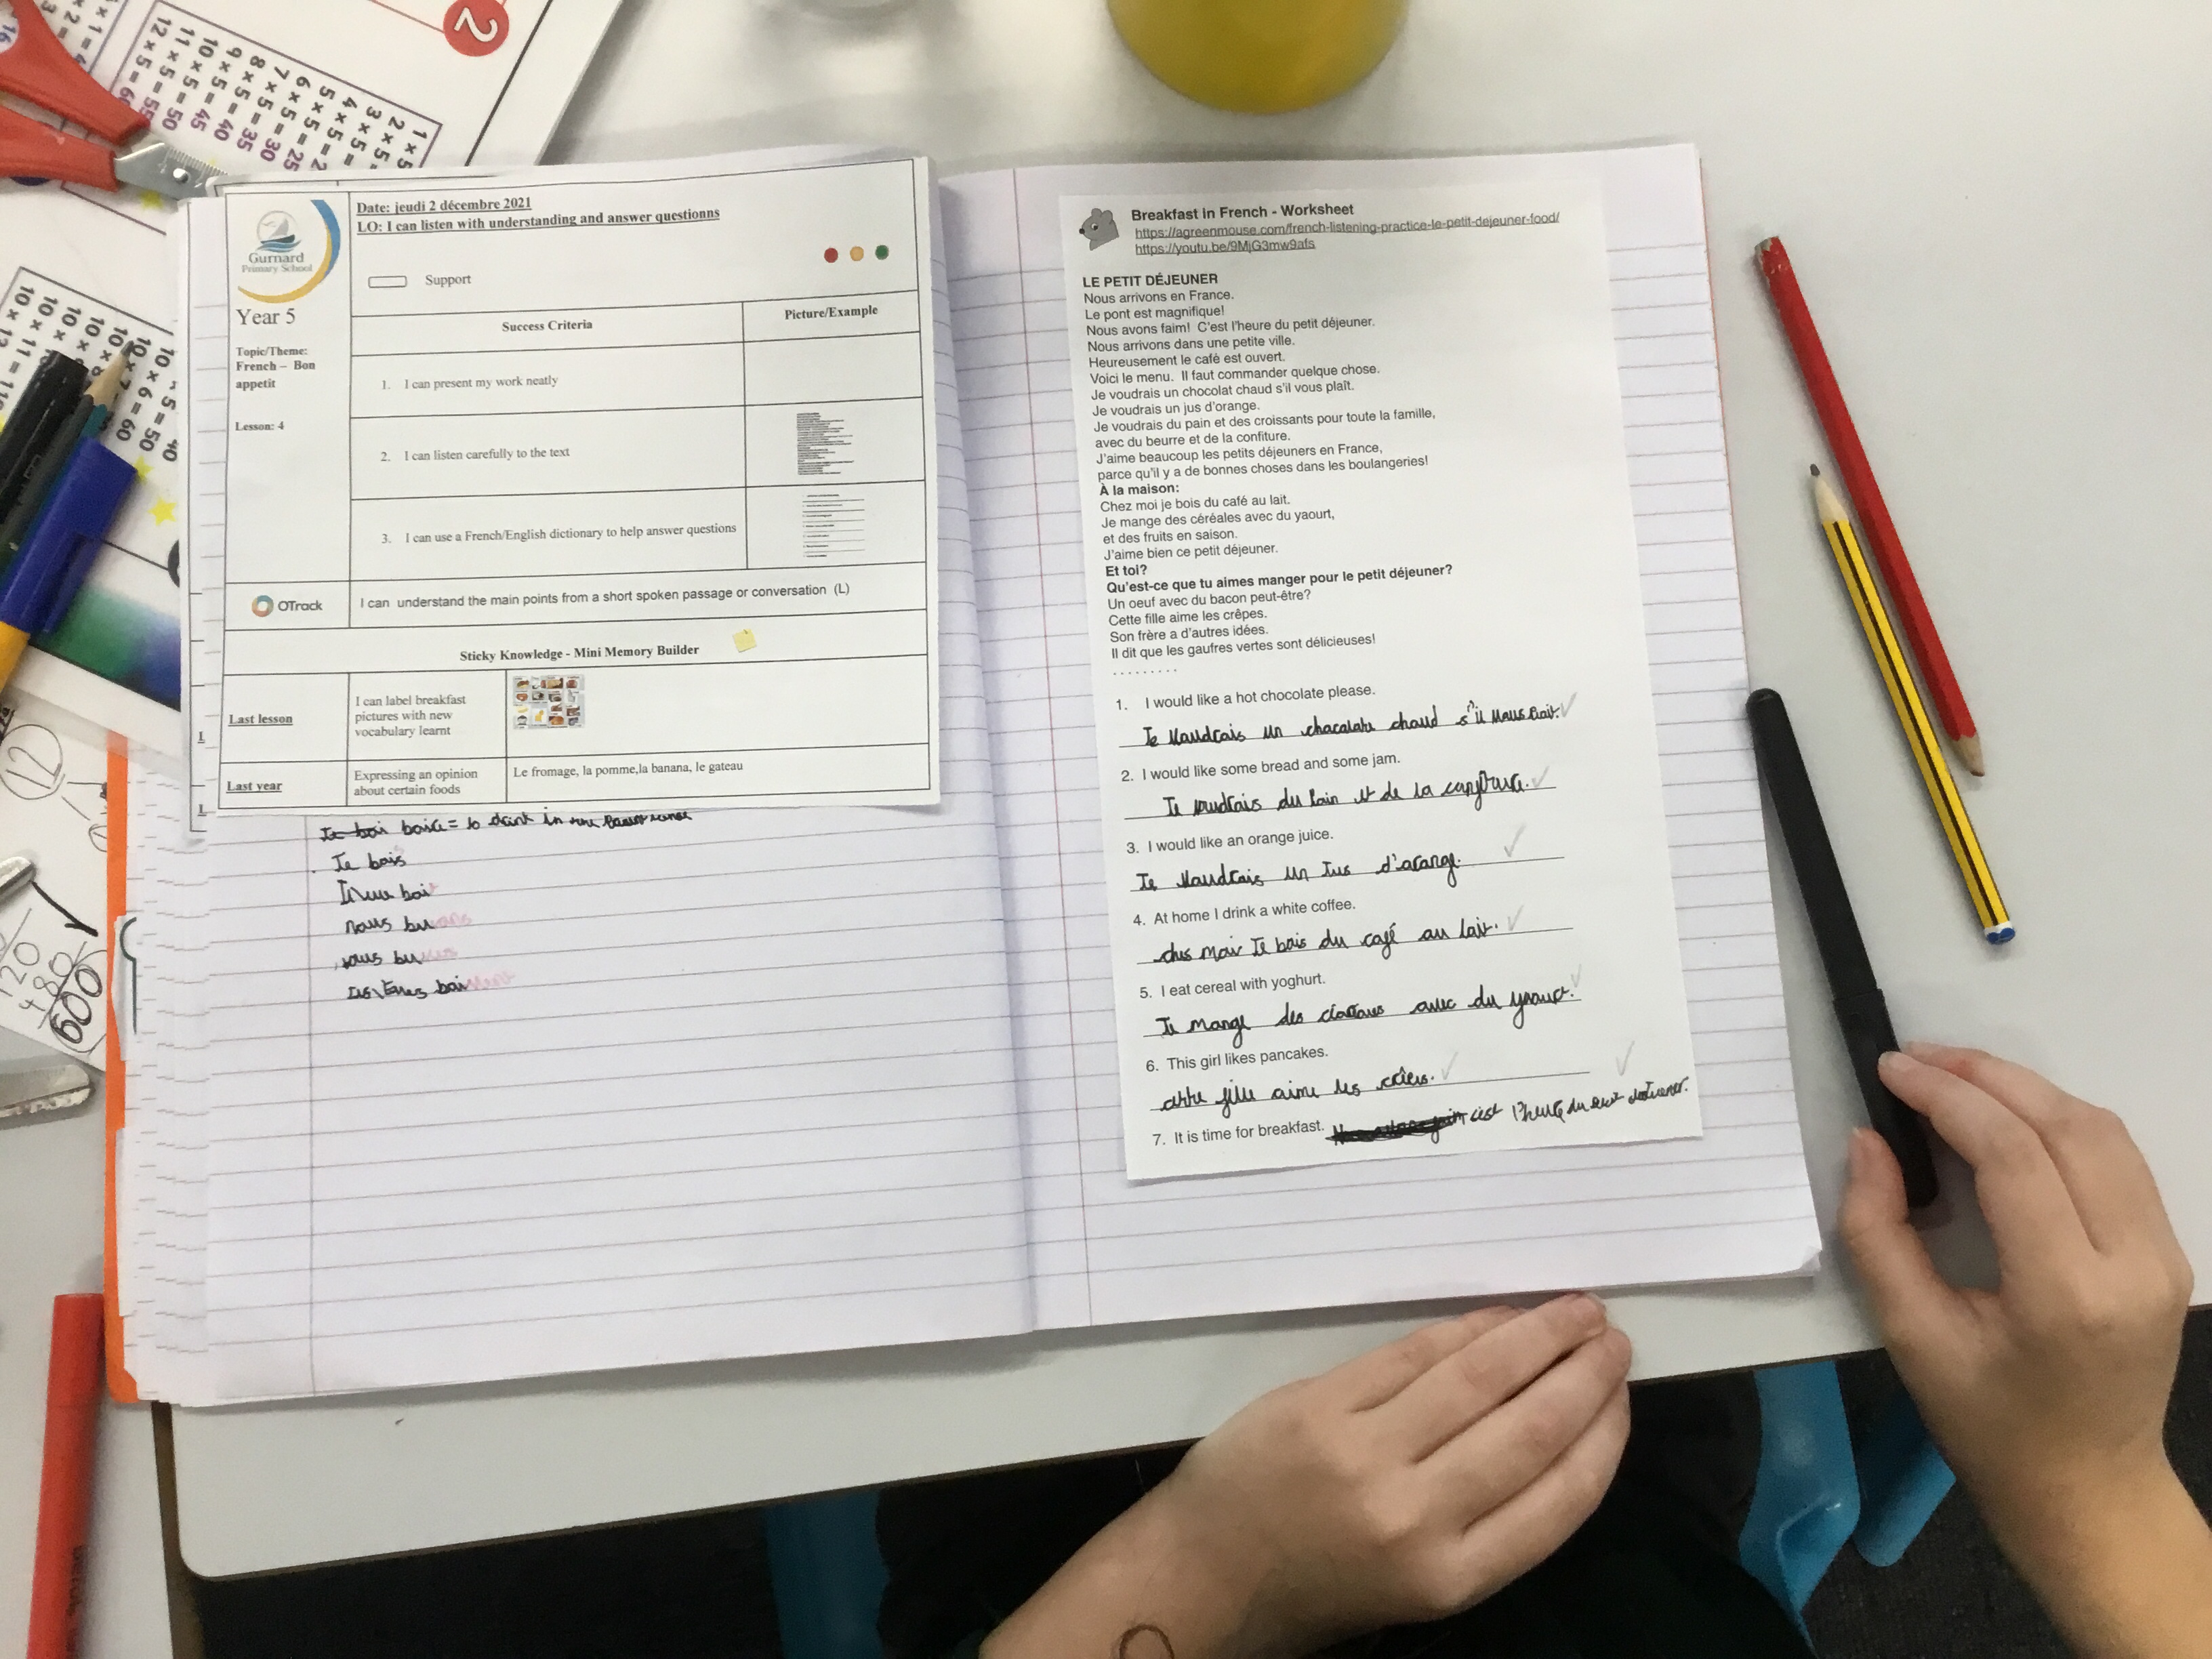 2
1 × 5
2 × 5
3 × 5 =
4 × 5 =
5 × 5 = 2
6 × 5 = 25
7 × 5 = 30
8 × 5 = 35
9 × 5 = 40
10 × 5 = 45
11 × 5 = 50
12 × 5 = 55
Gurnard
Primary School
Year 5
Topic/Theme:
French – Bon
appetit
Lesson: 4
Date: jeudi 2 décembre 2021
LO: I can listen with understanding and answer questionns
Support
Success Criteria
Picture/Example
1. I can present my work neatly
2. I can listen carefully to the text
3. I can use a French/English dictionary to help answer questions
OTrack
I can understand the main points from a short spoken passage or conversation (L)
Sticky Knowledge - Mini Memory Builder
Last lesson
I can label breakfast
pictures with new
vocabulary learnt
Last year
Expressing an opinion
about certain foods
Le fromage, la pomme,la banana, le gateau
boire = to drink in
Je bois
bois
nous bu
vous bu
boi
12
20
480
600
Breakfast in French - Worksheet
https://agreenmouse.com/french-listening-practice-le-petit-dejeuner-food/
https://youtu.be/9MjG3mw9afs
LE PETIT DÉJEUNER
Nous arrivons en France.
Le pont est magnifique!
Nous avons faim! C'est l'heure du petit déjeuner.
Nous arrivons dans une petite ville.
Heureusement le café est ouvert.
Voici le menu. Il faut commander quelque chose.
Je voudrais un chocolat chaud s'il vous plaît.
Je voudrais un jus d'orange.
Je voudrais du pain et des croissants pour toute la famille,
avec du beurre et de la confiture.
J'aime beaucoup les petits déjeuners en France,
parce qu'il y a de bonnes choses dans les boulangeries!
À la maison:
Chez moi je bois du café au lait.
Je mange des céréales avec du yaourt,
et des fruits en saison.
J'aime bien ce petit déjeuner.
Et toi?
Qu'est-ce que tu aimes manger pour le petit déjeuner?
Un oeuf avec du bacon peut-être?
Cette fille aime les crêpes.
Son frère a d'autres idées.
Il dit que les gaufres vertes sont délicieuses!
. . . . . . . . .
1. I would like a hot chocolate please.
Je Vaudrais un chacalate chaud s'il
2. I would like some bread and some jam.
Je voudrais du Pain et de la
3. I would like an orange juice.
Je Vaudrais un Jus d'arange.
4. At home I drink a white coffee.
Je bois du café au lait.
5. I eat cereal with yoghurt.
Je mange des avec du
6. This girl likes pancakes.
fille aime les
7. It is time for breakfast. c'est l'heure du